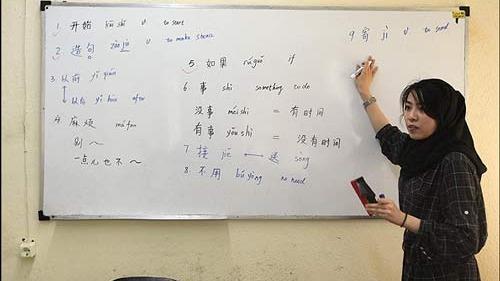 1. 开始 kāi shǐ v to start
2. 造句 zào jù v to make
3 以前 yǐ qián
以后 yǐ hòu after
4. 麻烦 má fan
别~
一点儿也不~
5. 如果 rú guǒ if
6. 事 shì something to do
没事 méi shì = 有时间
有事 yǒu shì = 没有时间
7. 接 jiē ⟷ 送 sòng
8. 不用 bú yòng no need
9 寄 jì v to send